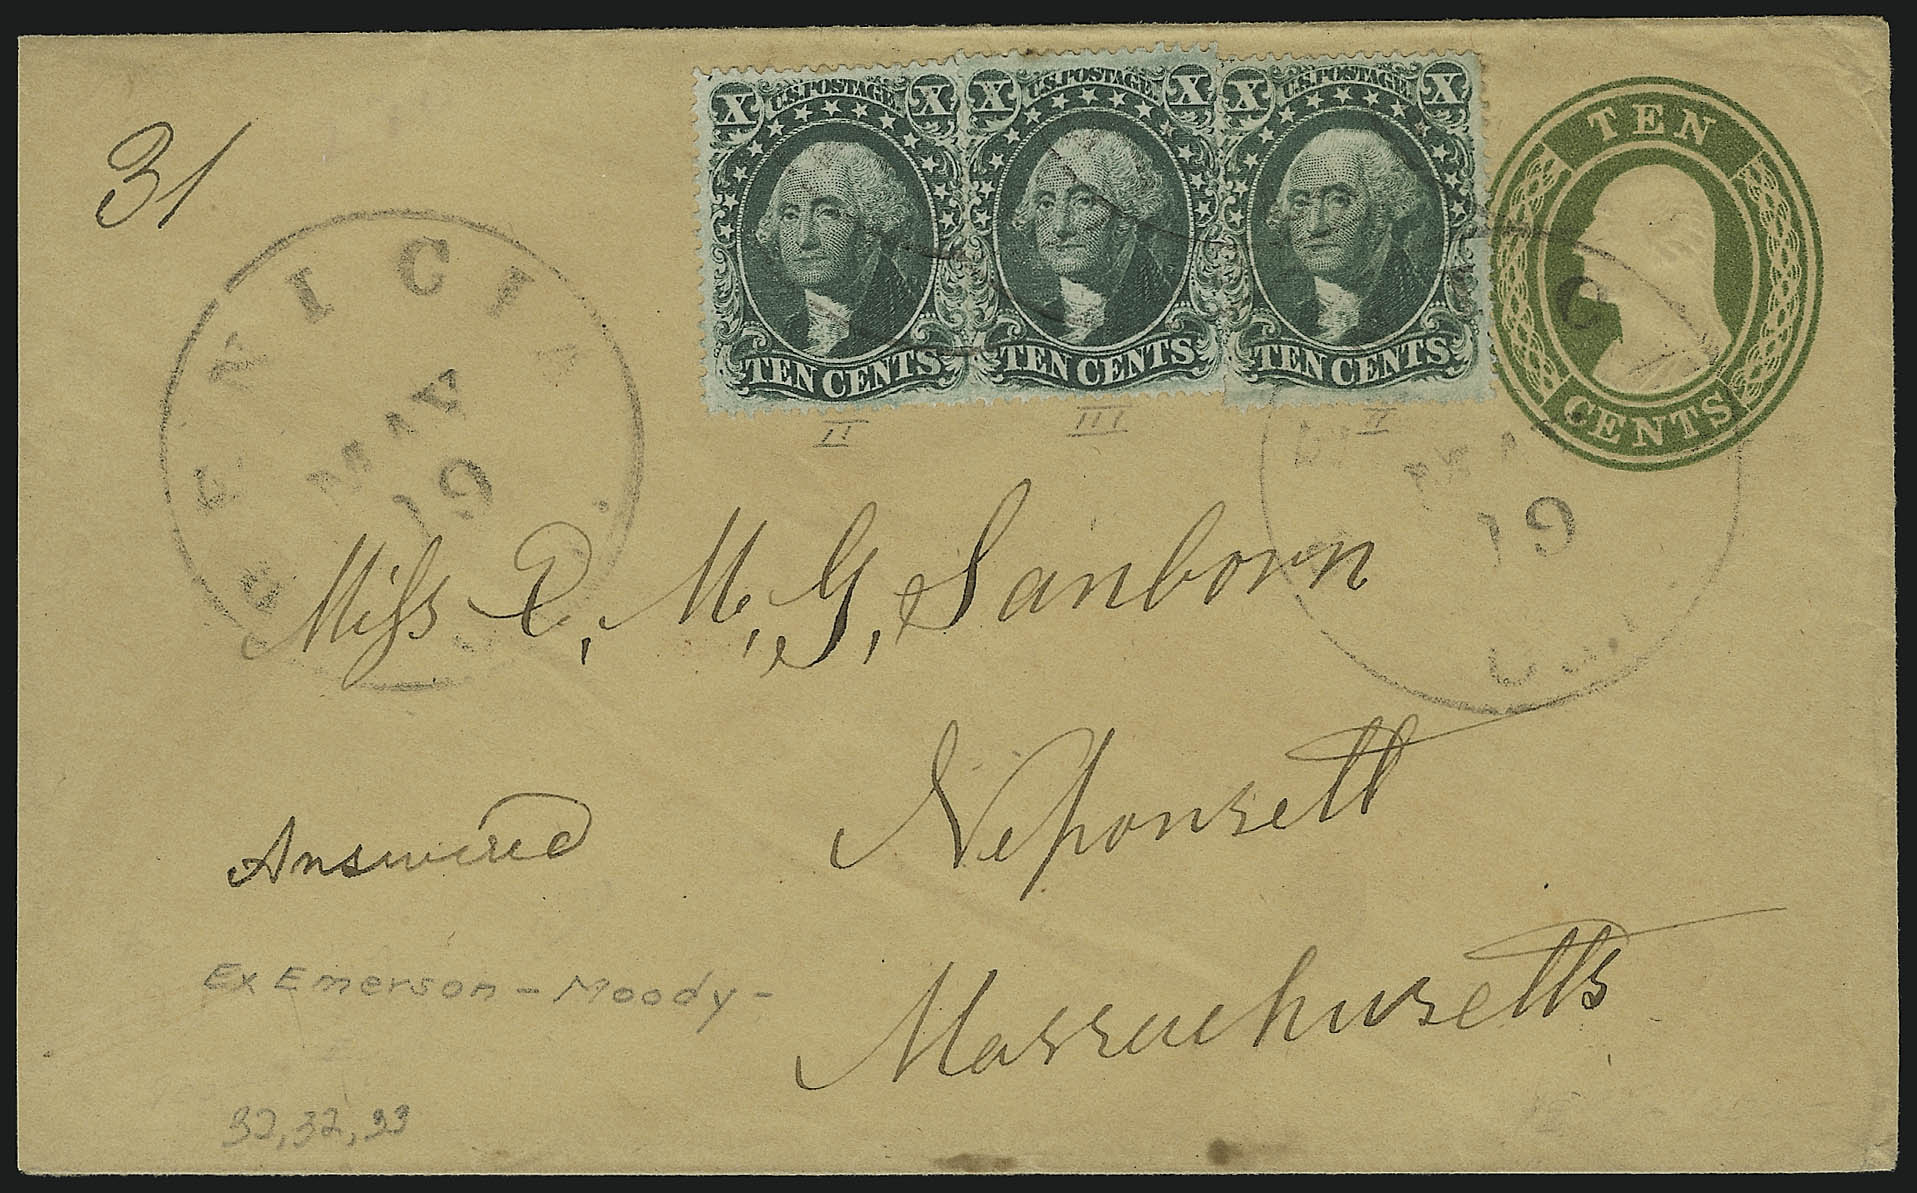 31
X U.S. POSTAGE. X
TEN CENTS
X U.S. POSTAGE. X
TEN CENTS
X U.S. POSTAGE. X
TEN CENTS
TEN
CENTS
II III II
BENICIA
MAY
19
MAY
19
CAL.
Miss E, M, G, Sanborn
Neponsett
Massachusetts
Answered
Ex Emerson - Moody -
32, 32, 33